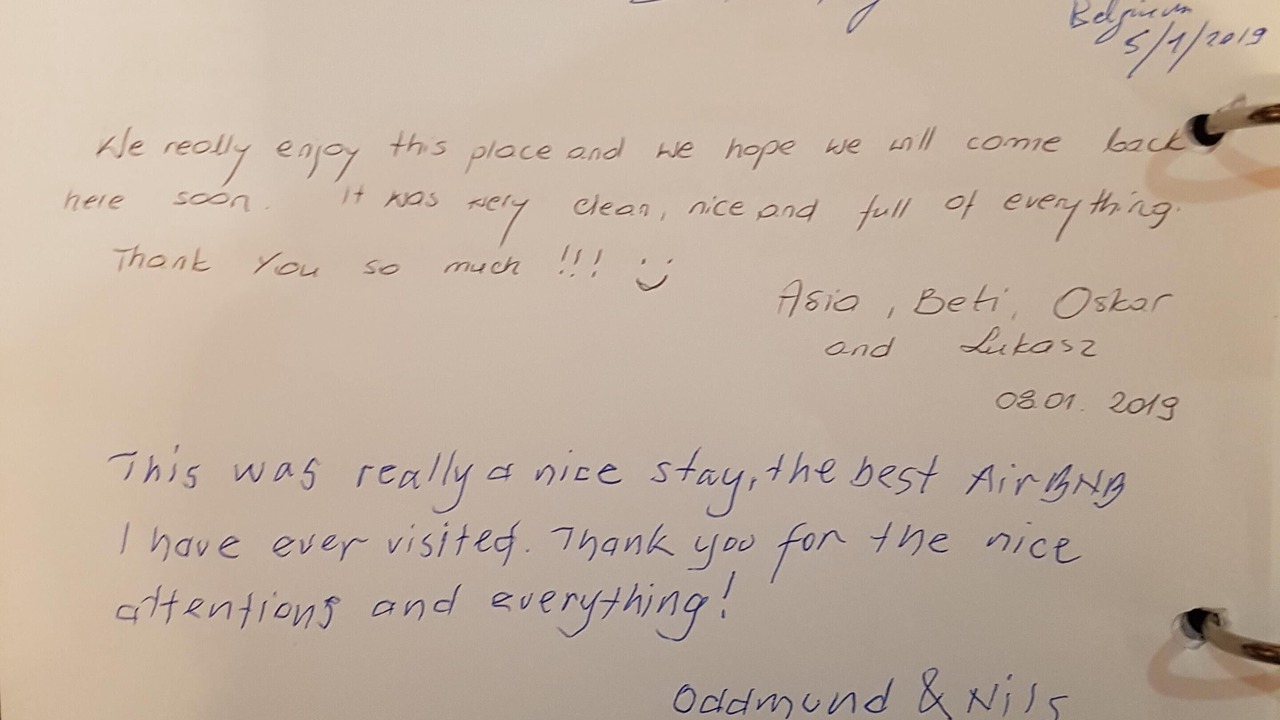 Belgium
5/1/2019
We really enjoy this place and we hope we will come back
here soon. It was very clean, nice and full of everything.
Thank You so much !!! :)
Asia, Beti, Oskar
and Łukasz
08.01.2019
This was really a nice stay, the best AirBNB
I have ever visited. Thank you for the nice
attentions and everything!
Oddmund & Nils